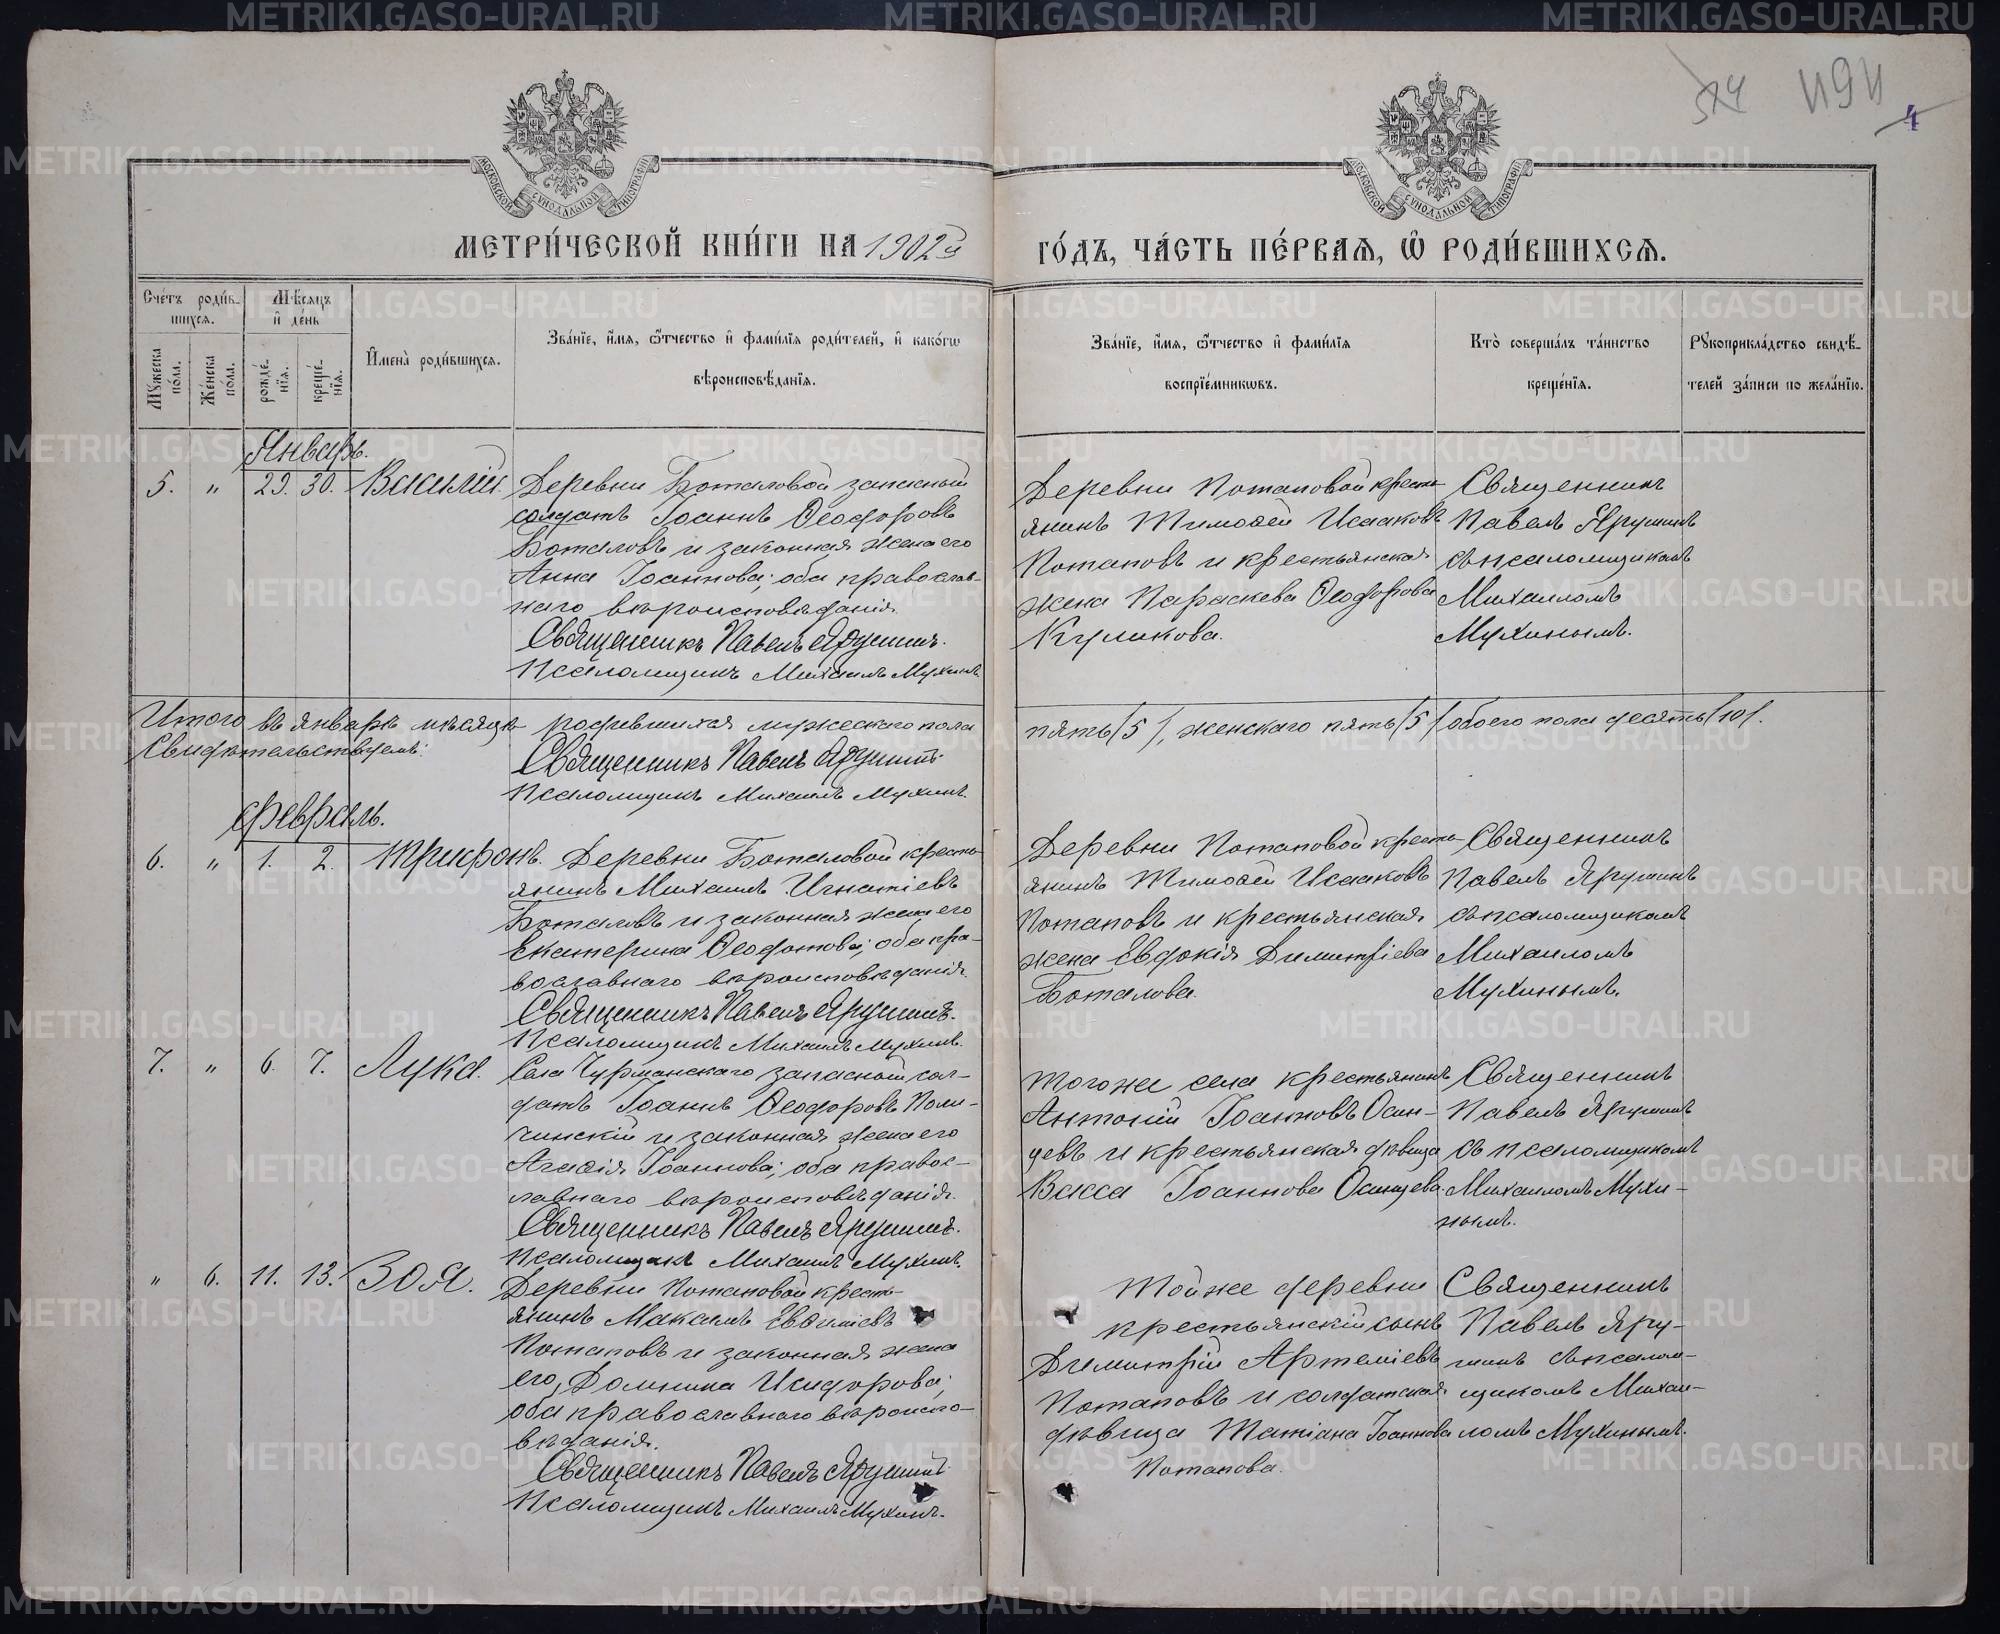 494
4
МОСКОВСКОЙ СУНОДАЛЬНОЙ ТИПОГРАФІИ
МОСКОВСКОЙ СУНОДАЛЬНОЙ ТИПОГРАФІИ
МЕТРИ́ЧЕСКОЙ КНИ́ГИ НА 1902й
ГО́ДЪ, ЧА́СТЬ ПЕ́РВАЯ, Ѡ РОДИ́ВШИХСЯ.
Сче́тъ роди́в-
шихся.
Мѣ́сяцъ
и де́нь
Мꙋжеска по́ла.
Же́нска по́ла.
рожде́-
нїя.
креще́-
нїя.
Имена̀ роди́вшихся.
Зва́нїе, и́мя, ѻ҆́тчество и фами́лїя роди́телей, и како́гѡ
вѣроисповѣ́данїя.
Зва́нїе, и́мя, ѻ҆́тчество и фами́лїя
воспрїе́мникѡвъ.
Кто̀ соверша́лъ та́инство
креще́нїя.
Рꙋкоприкла́дство свидѣ́-
телей за́писи по жела́нїю.
Январь.
5. „ 29. 30. Василій.
Деревни Боталовой запасный
солдатъ Іоаннъ Ѳеодоровъ
Боталовъ и законная жена его
Анна Іоаннова; оба православ-
наго вѣроисповѣданія.
Священникъ Павелъ Ярушинъ.
Псаломщикъ Михаилъ Мухинъ.
Деревни Потаповой кресть-
янинъ Тимоѳей Исааковъ
Потаповъ и крестьянская
жена Параскева Ѳеодорова
Куликова.
Священникъ
Павелъ Ярушинъ
съ псаломщикомъ
Михаиломъ
Мухинымъ.
Итого въ январѣ мѣсяцѣ родившихся мужескаго пола
пять /5/, женскаго пять /5/ обоего пола десять /10/.
Свидѣтельствуемъ:
Священникъ Павелъ Ярушинъ
Псаломщикъ Михаилъ Мухинъ.
Февраль.
6. „ 1. 2. Трифонъ.
Деревни Боталовой кресть-
янинъ Михаилъ Игнатіевъ
Боталовъ и законная жена его
Екатерина Ѳеодотова; оба пра-
вославнаго вѣроисповѣданія.
Священникъ Павелъ Ярушинъ.
Псаломщикъ Михаилъ Мухинъ.
Деревни Потаповой кресть-
янинъ Тимоѳей Исааковъ
Потаповъ и крестьянская
жена Евдокія Димитріева
Боталова.
Священникъ
Павелъ Ярушинъ
съ псаломщикомъ
Михаиломъ
Мухинымъ.
7. „ 6. 7. Лука.
Села Чурманскаго запасный сол-
датъ Іоаннъ Ѳеодоровъ Поли-
чинскій и законная жена его
Агаѳія Іоаннова; оба правос-
лавнаго вѣроисповѣданія.
Священникъ Павелъ Ярушинъ.
Псаломщикъ Михаилъ Мухинъ.
Тогоже села крестьянинъ
Антоній Іоанновъ Осин-
цевъ и крестьянская дѣвица
Васса Іоаннова Осинцева.
Священникъ
Павелъ Ярушинъ
съ псаломщикомъ
Михаиломъ Мухи-
нымъ.
„ 6. 11. 13. Зоя.
Деревни Потаповой кресть-
янинъ Макаимъ Евѳиміевъ
Потаповъ и законная жена
его, Домника Исидорова;
оба православнаго вѣроиспо-
вѣданія.
Священникъ Павелъ Ярушинъ
Псаломщикъ Михаилъ Мухинъ.
Тойже деревни
крестьянскій сынъ
Димитрій Артеміевъ
Потаповъ и солдатская
дѣвица Татіана Іоаннова
Потапова.
Священникъ
Павелъ Яру-
шинъ съ псалом-
щикомъ Михаи-
ломъ Мухинымъ.
METRIKI.GASO-URAL.RU